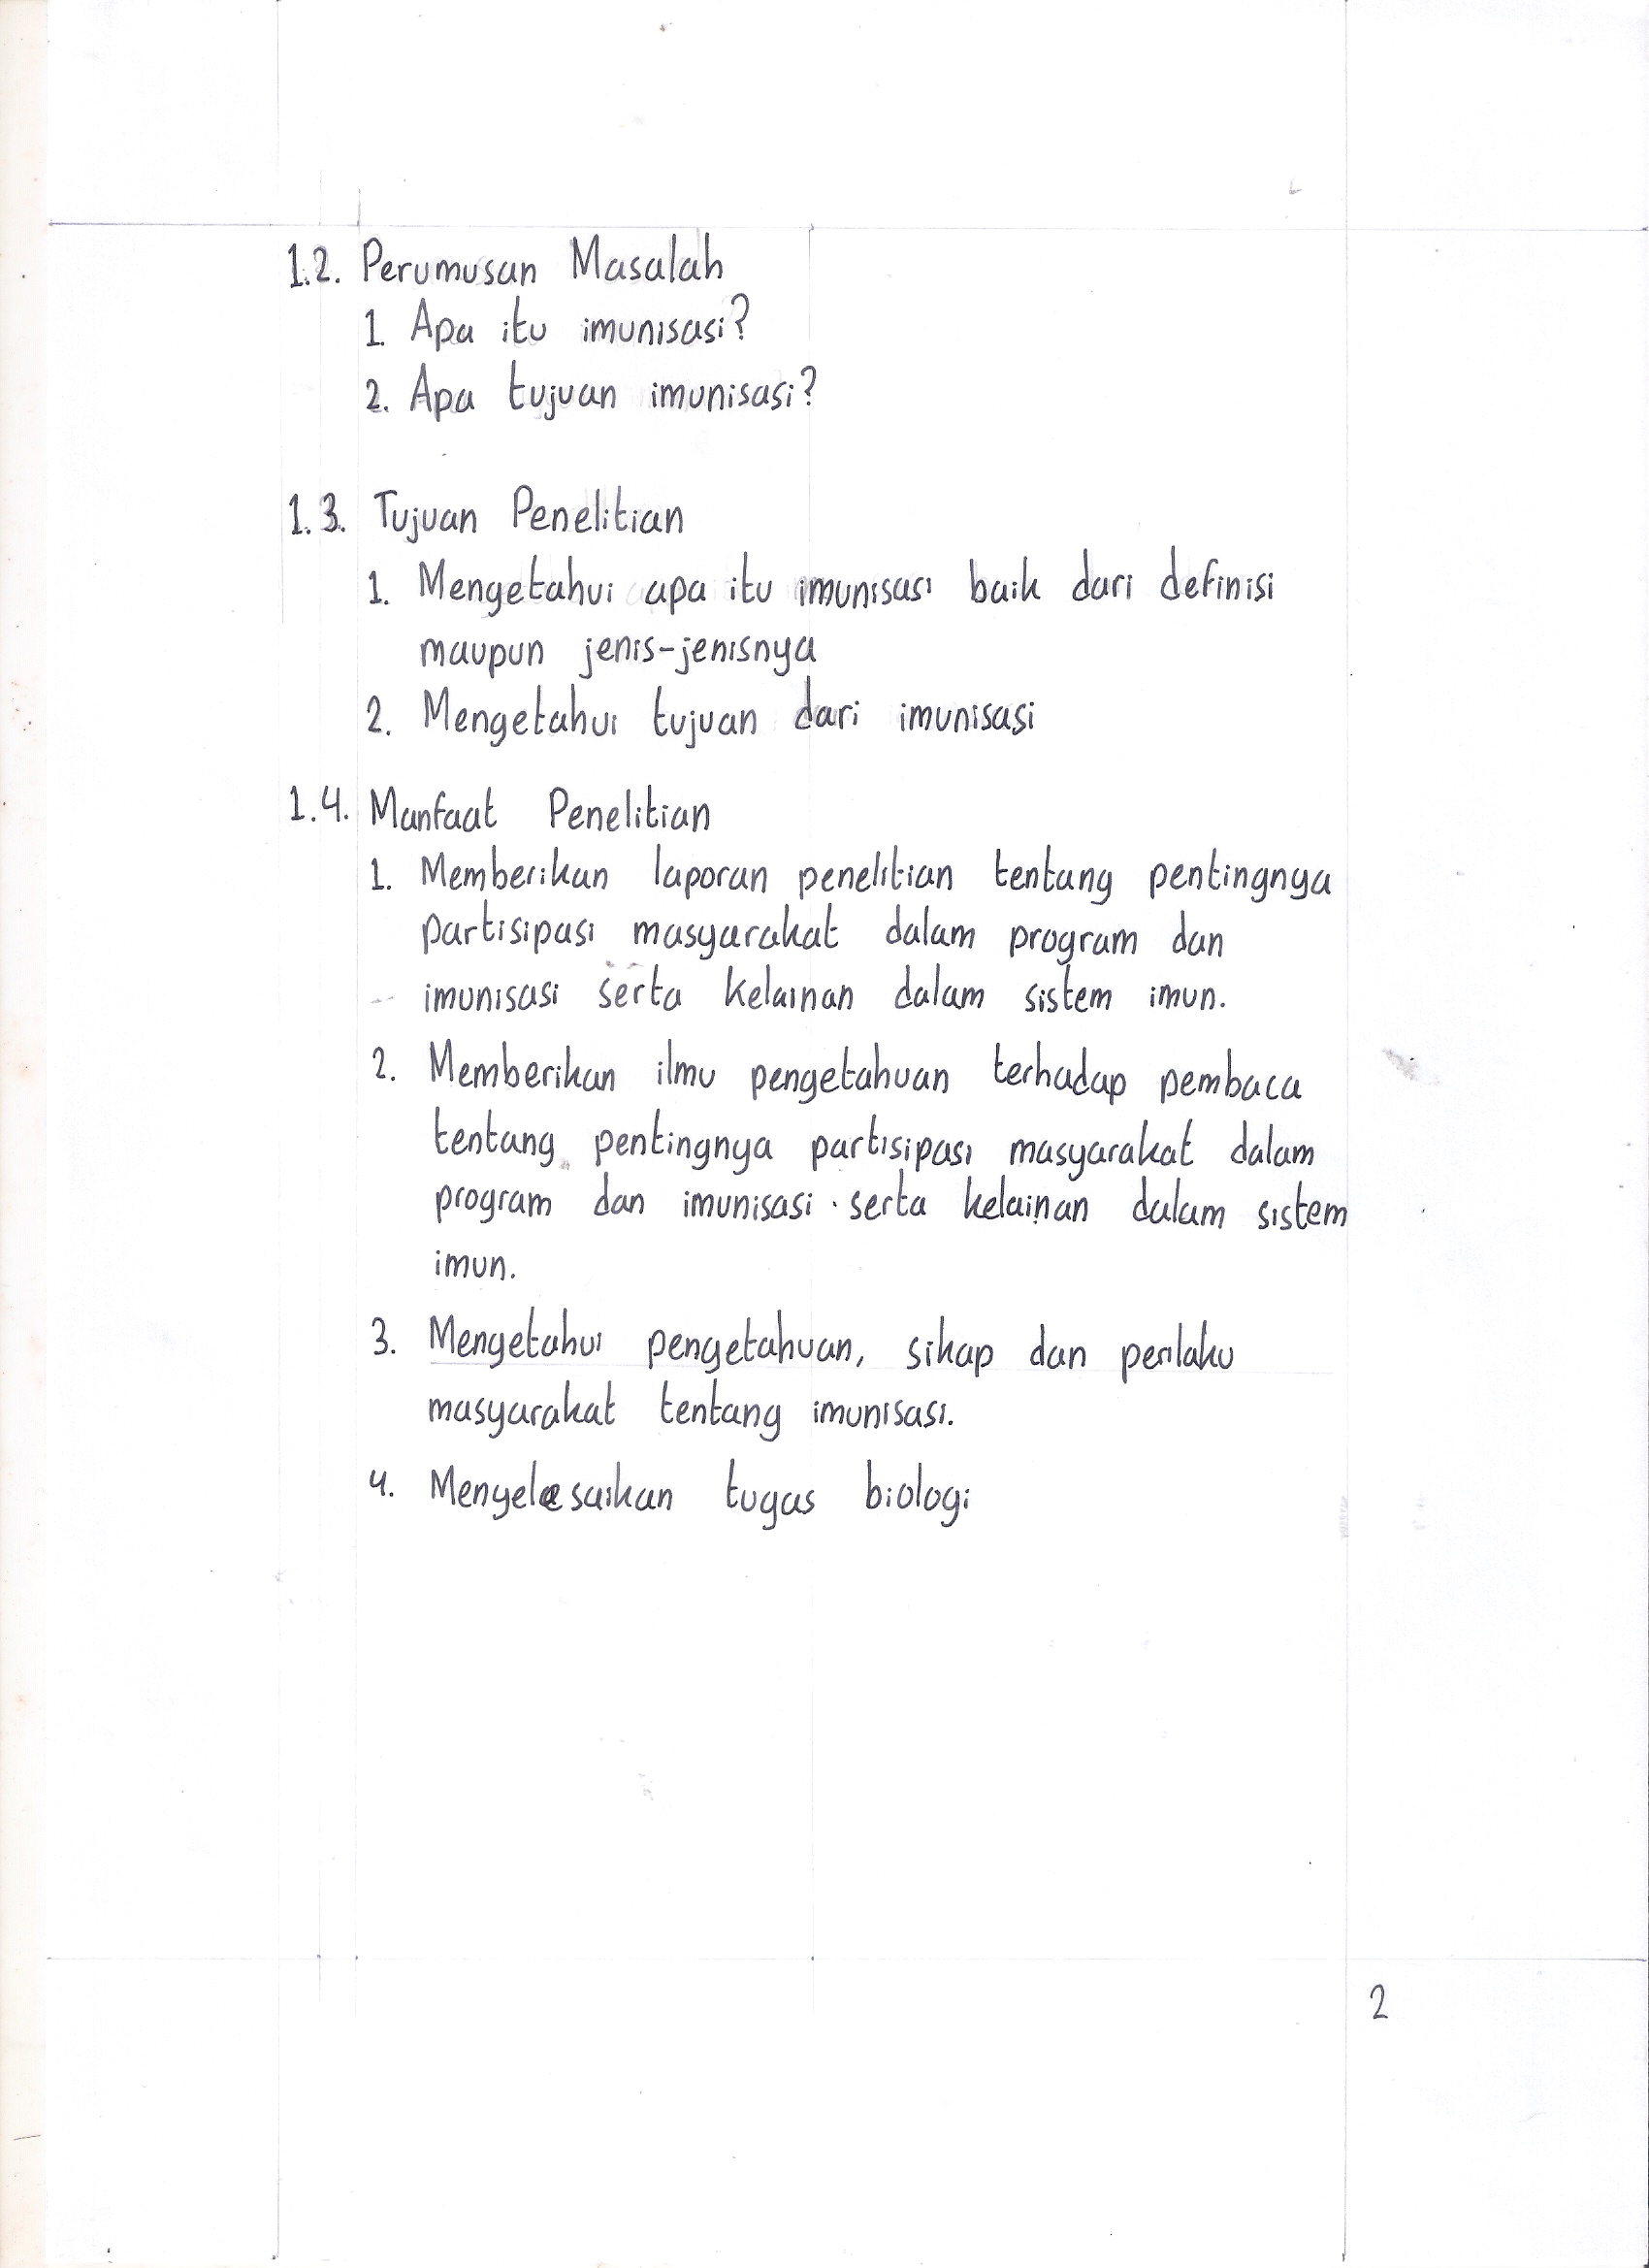 1.2. Perumusan Masalah
1. Apa itu imunisasi?
2. Apa tujuan imunisasi?
1.3. Tujuan Penelitian
1. Mengetahui apa itu imunisasi baik dari definisi
maupun jenis-jenisnya
2. Mengetahui tujuan dari imunisasi
1.4. Manfaat Penelitian
1. Memberikan laporan penelitian tentang pentingnya
partisipasi masyarakat dalam program dan
imunisasi serta kelainan dalam sistem imun.
2. Memberikan ilmu pengetahuan terhadap pembaca
tentang pentingnya partisipasi masyarakat dalam
program dan imunisasi serta kelainan dalam sistem
imun.
3. Mengetahui pengetahuan, sikap dan perilaku
masyarakat tentang imunisasi.
4. Menyelesaikan tugas biologi
2